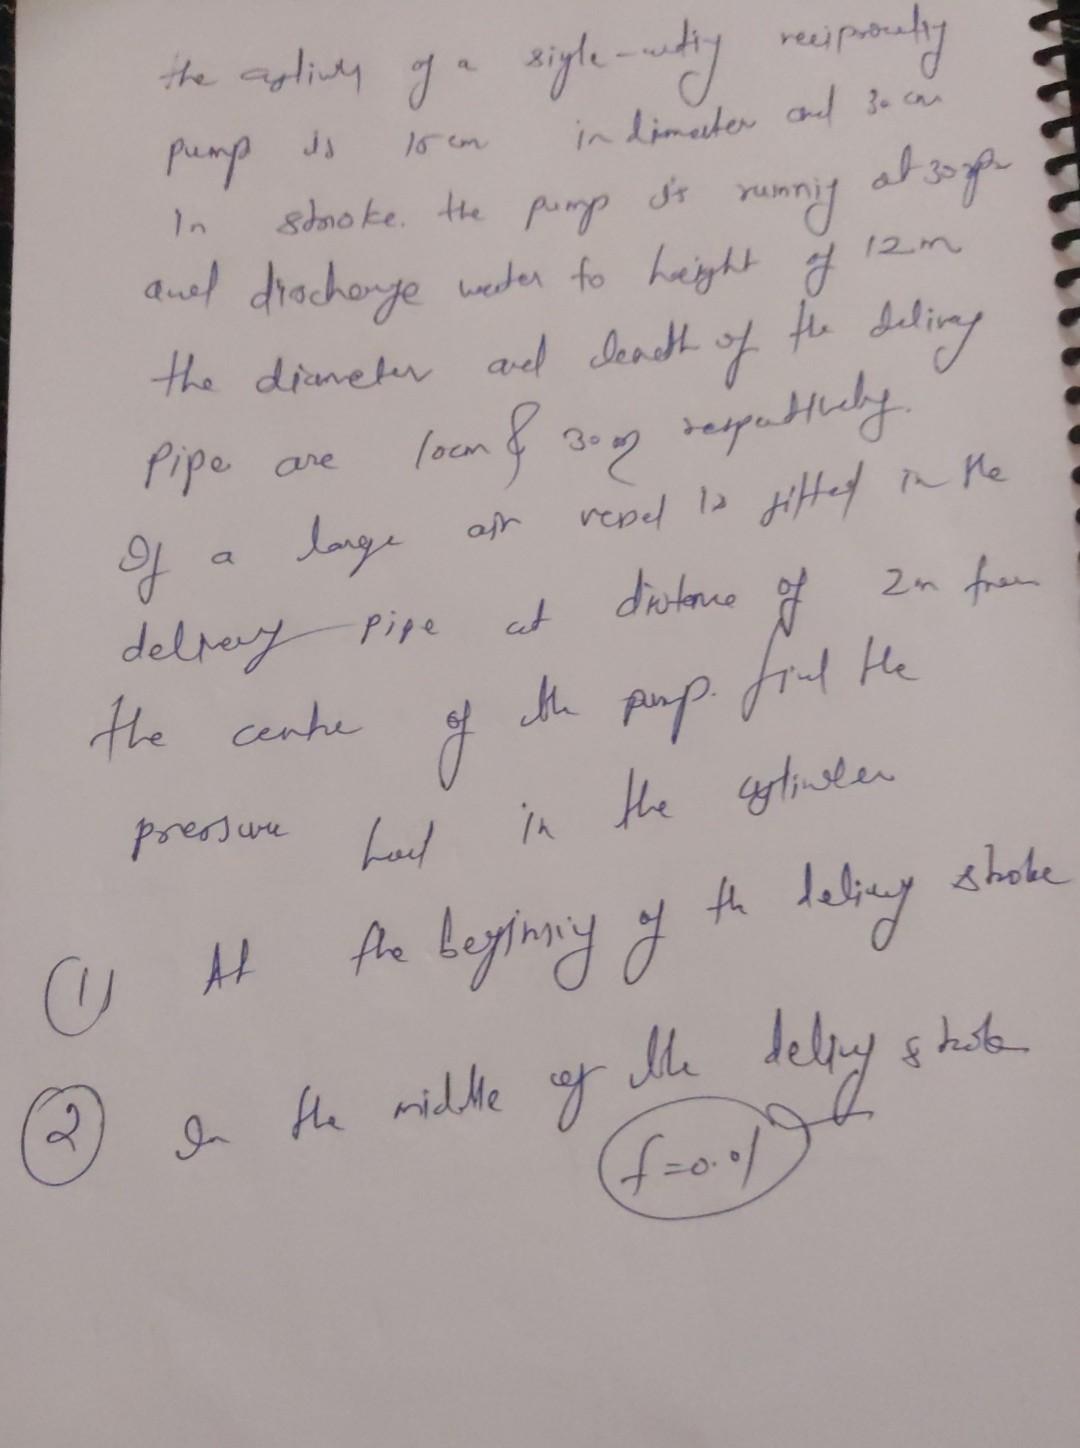 the cylinder of a single-acting reciprocating
pump is 15 cm in dimeter and 30 cm
In stroke. the pump is running at 30 rpm
and discharge water to height of 12 m
the diameter and length of the delivery
Pipe are 10cm & 30 m respectively.
If a large air vessel is fitted in the
delivery pipe at distance of 2m from
the centre of the pump. find the
pressure head in the cylinder
① At the beginning of the delivery stroke
② In the middle of the delivery stroke
f=0.01